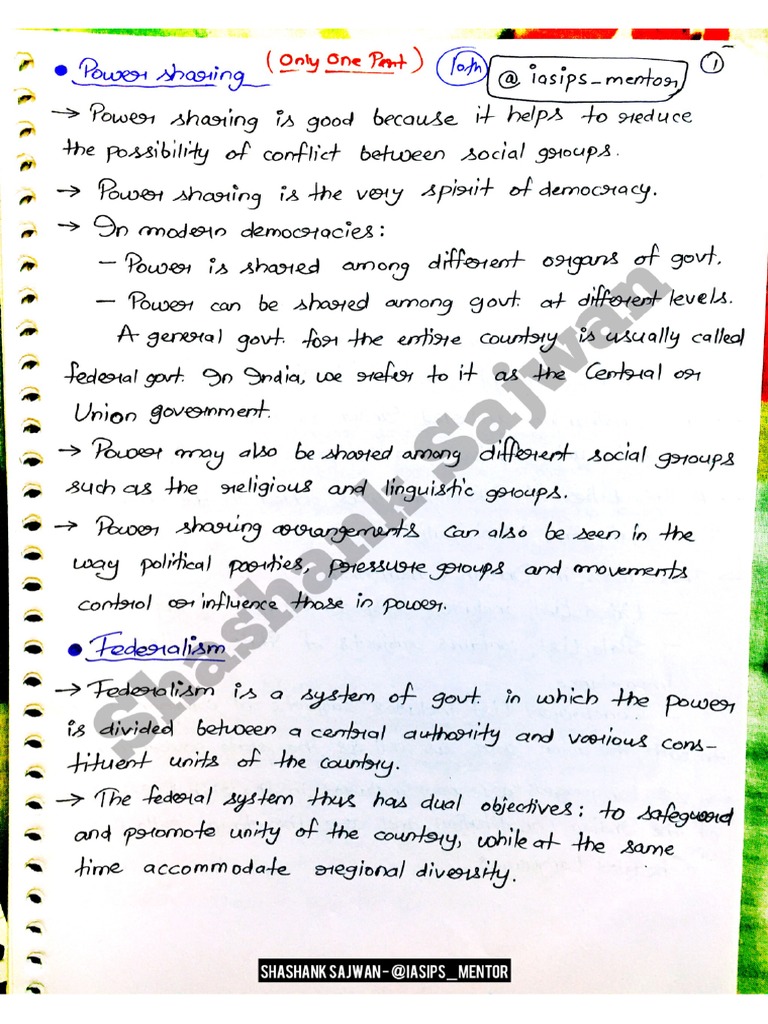 • Power sharing (Only One Part) 10th @iasips_mentor 1
→ Power sharing is good because it helps to reduce
the possibility of conflict between social groups.
→ Power sharing is the very spirit of democracy.
→ In modern democracies:
– Power is shared among different organs of govt.
– Power can be shared among govt. at different levels.
A general govt. for the entire country is usually called
federal govt. In India, we refer to it as the Central or
Union government.
→ Power may also be shared among different social groups
such as the religious and linguistic groups.
→ Power sharing arrangements can also be seen in the
way political parties, pressure groups and movements
control or influence those in power.
• Federalism
→ Federalism is a system of govt. in which the power
is divided between a central authority and various cons-
tituent units of the country.
→ The federal system thus has dual objectives: to safeguard
and promote unity of the country, while at the same
time accommodate regional diversity.
Shashank Sajwan
SHASHANK SAJWAN - @IASIPS_MENTOR